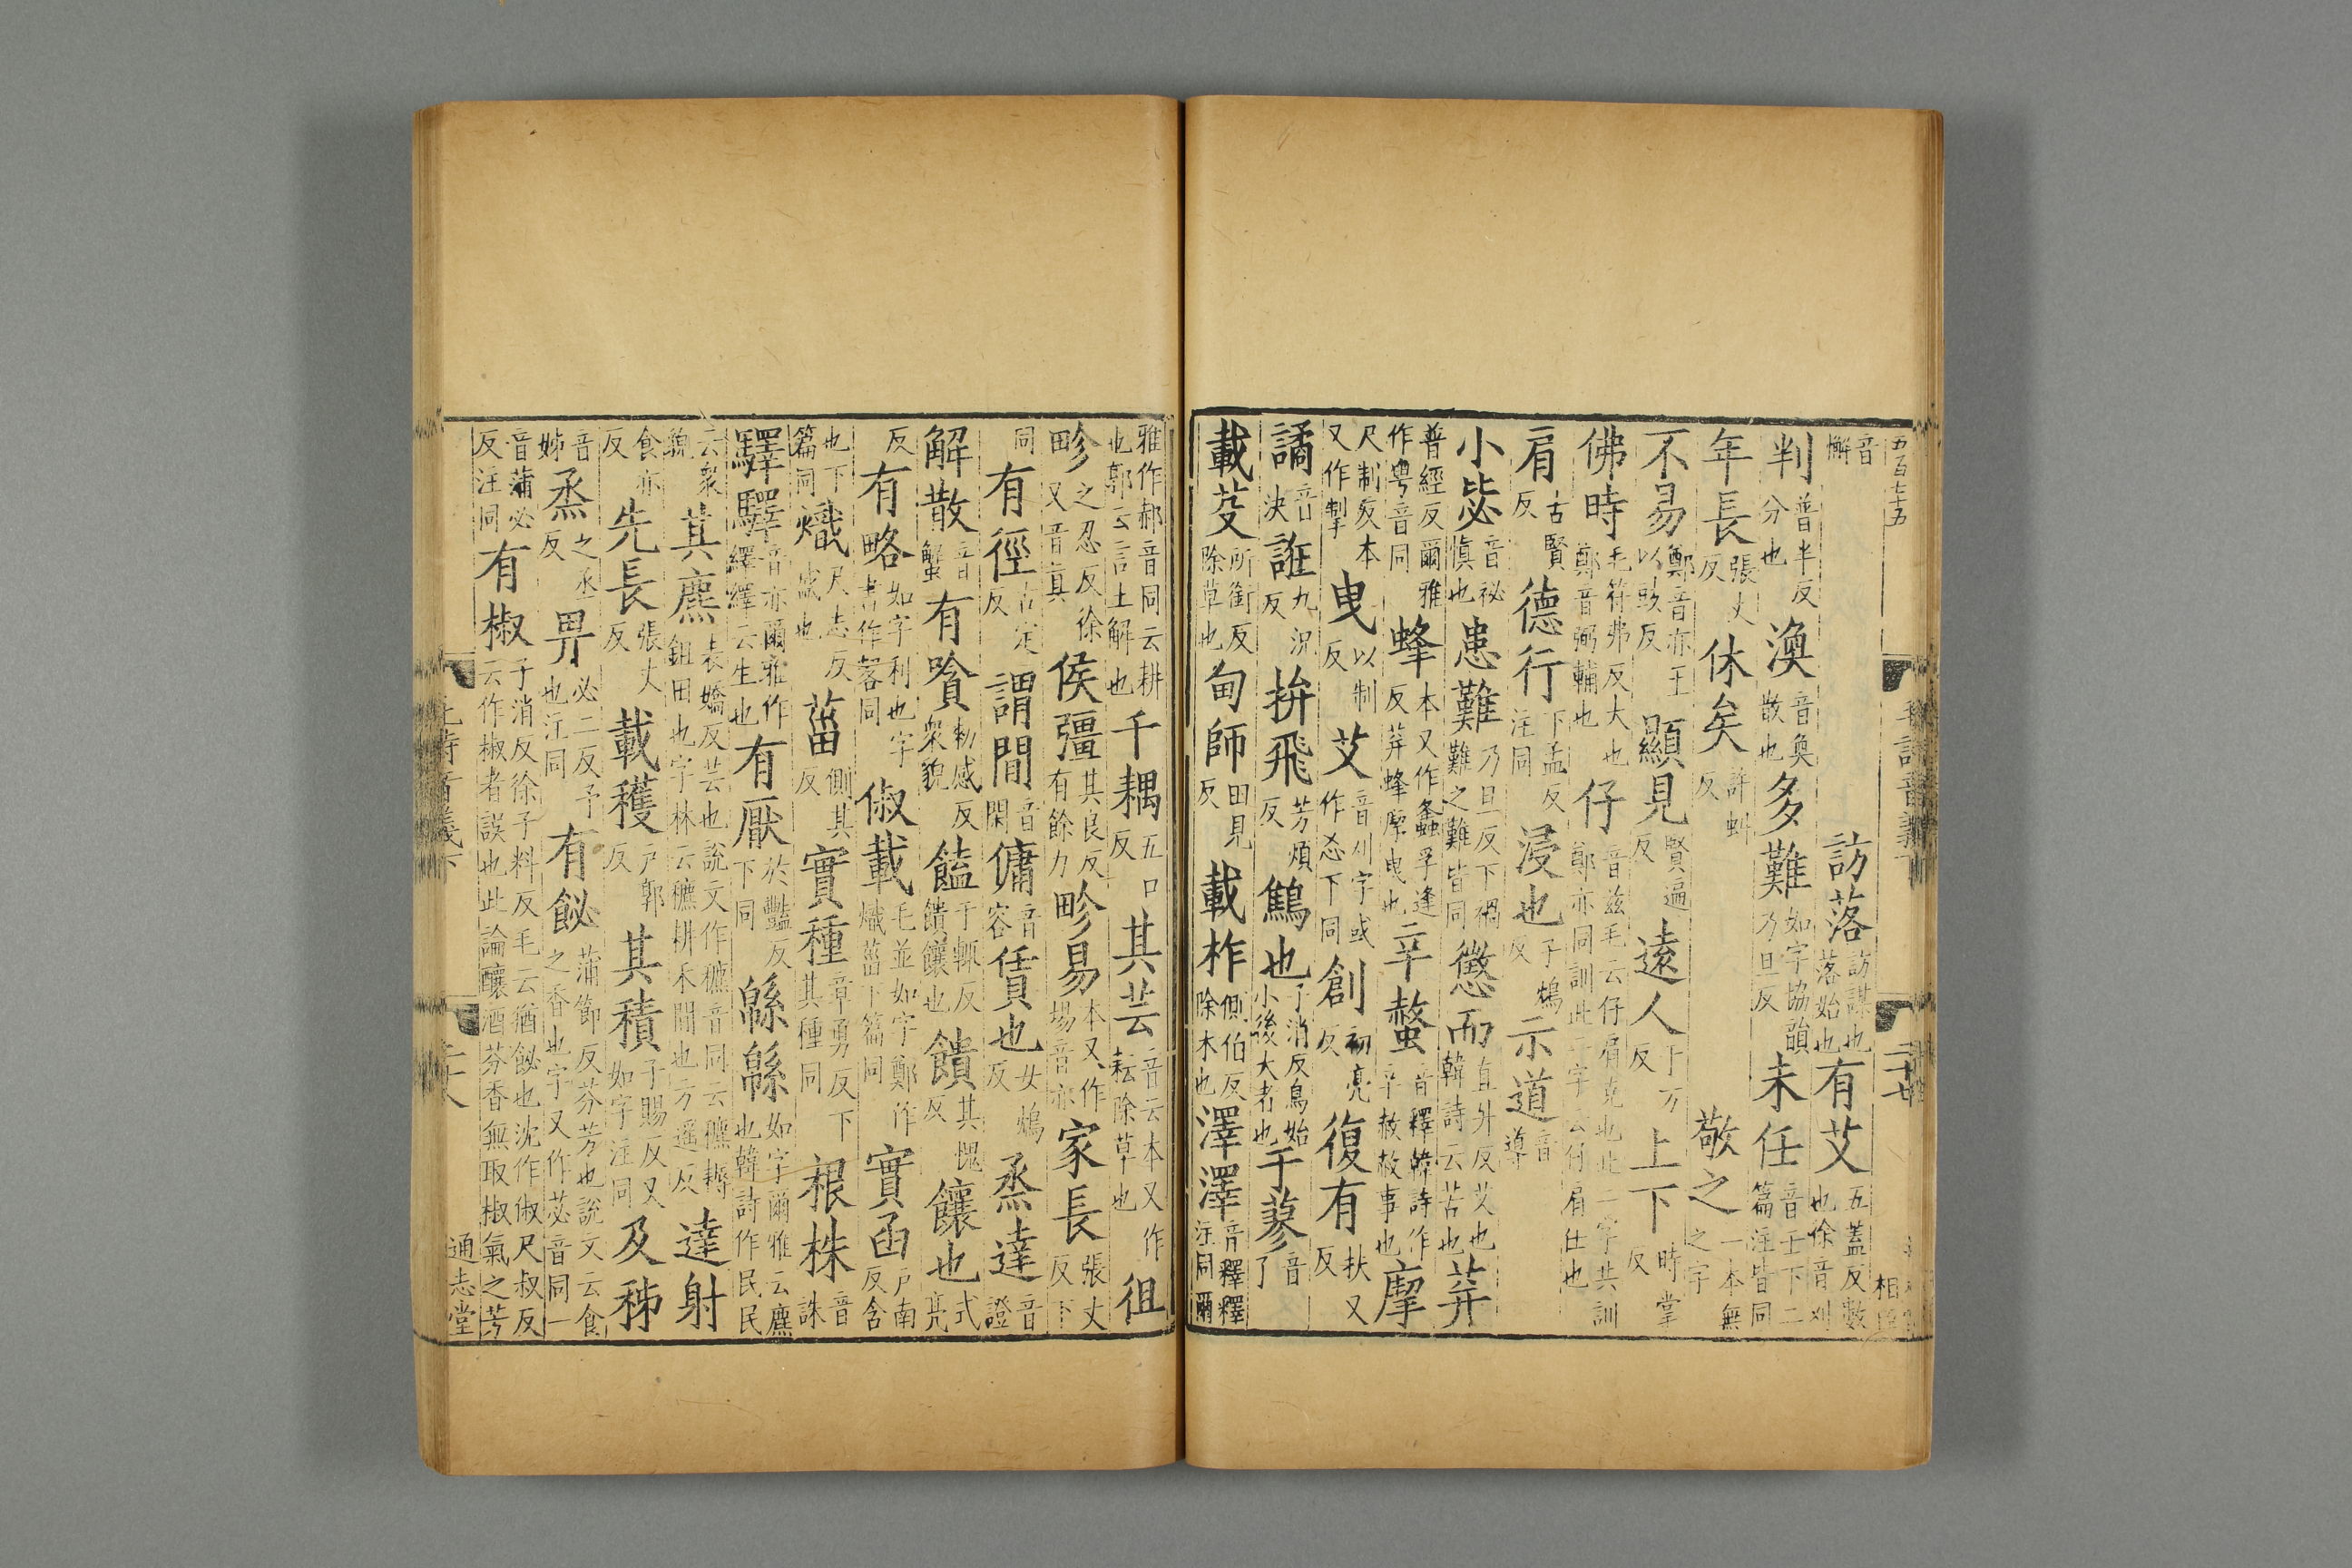 五百七十五
音懈 訪落訪謀也落始也 有艾五蓋反數也徐音刈
判普半反分也 渙音奐散也 多難如字協韻乃旦反 未任音壬下二篇注皆同
年長張丈反 休矣許虯反 敬之一本無之字
不易鄭音亦王以豉反 顯見賢遍反 遠人于万反 上下時掌反
佛時毛符弗反大也鄭音弼輔也 仔音茲毛云仔肩克也此二字共訓鄭亦同訓此二字云仔肩任也
肩古賢反 德行下孟反注同 浸也子鴆反 示道音導
小毖音祕慎也 患難乃旦反下禍難之難皆同 懲而直升反艾也韓詩云苦也 荓
普經反爾雅作甹音同 蜂本又作螽孚逢反荓蜂摩曳也 辛螫音釋韓詩作辛赦赦事也 摩
尺制反本又作掣 曳以制反 艾音刈字或作㣻下同 創初亮反 復有扶又反
譎音決 誑九況反 拚飛芳煩反 鷦也子消反鳥始小後大者也 于蓼音了
載芟所銜反除草也 甸師田見反 載柞側伯反除木也 澤澤音釋釋注同爾
雅作郝音同云耕也郭云言土解也 千耦五口反 其芸音云本又作耘除草也 徂
畛之忍反徐又音真 侯彊其良反有餘力 畛易本又作埸音亦 家長張丈反下
同 有徑古定反 謂間音閑 傭音容 賃也女鴆反 烝達音證
解散音蟹 有嗿勑感反衆貌 饁于輒反饋饟也 饋其愧反 饟也式亮
反 有略如字利也字書作䂮同 俶載毛並如字鄭作熾菑下篇同 實函戶南反含
也下篇同 熾尺志反盛也 菑側其反 實種章勇反下其種同 根株音誅
驛驛音亦爾雅作繹繹云生也 有厭於豔反下同 緜緜如字爾雅云麃也韓詩作民民
云衆貌 其麃表嬌反芸也說文作穮音同云穮耨鉏田也字林云穮耕禾間也方遙反 達射
食亦反 先長張丈反 載穫戶郭反 其積子賜反又如字注同 及秭
音姊 烝之丞反 畀必二反予也注同 有飶蒲節反芬芳也說文云食之香也字又作苾音同一
音蒲必反注同 有椒子消反徐子料反毛云猶飶也沈作俶尺叔反云作椒者誤也此論釀酒芬香無取椒氣之芳
通志堂